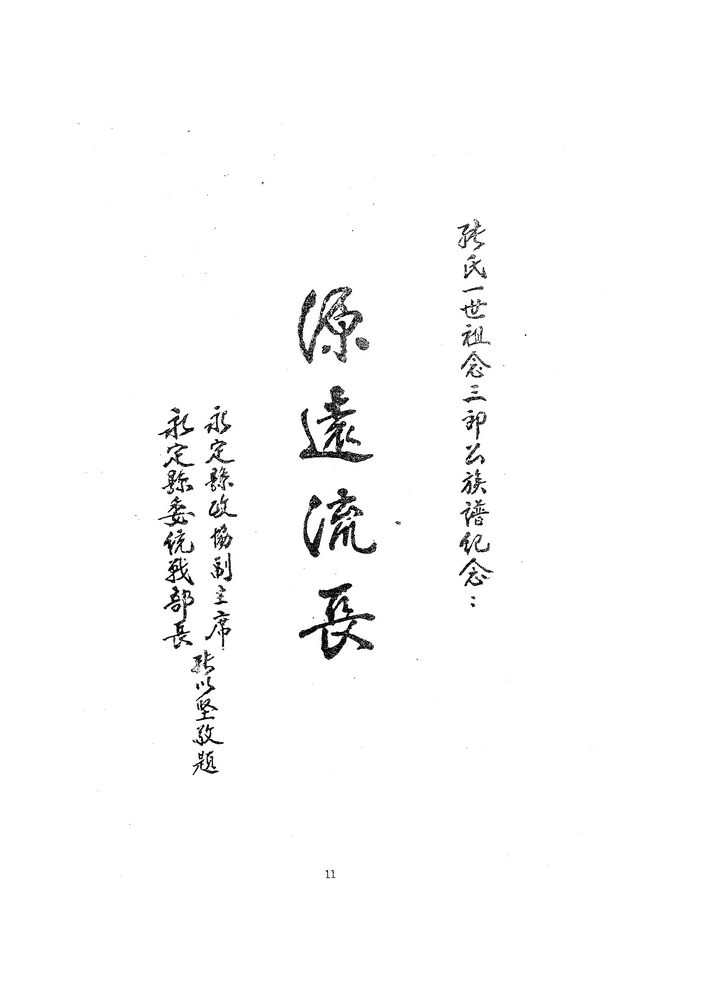 張氏一世祖念三郎公族譜纪念：
源遠流長
永定縣政協副主席
永定縣委统戰部長
張以坚敬題
11